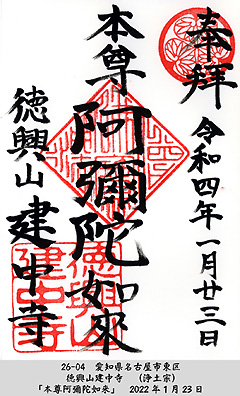 奉拝
令和四年一月廿三日
本尊
阿彌陀如來
徳興山
建中寺
徳興山
建中寺
26-04 愛知県名古屋市東区
徳興山建中寺 (浄土宗)
「本尊阿彌陀如来」 2022年1月23日